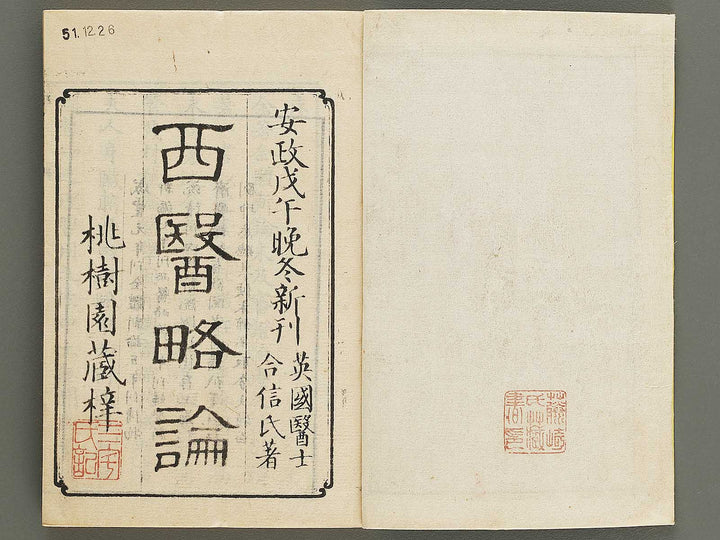 51.12.26
安政戊午晩冬新刊
英國醫士
合信氏著
西醫略論
桃樹園藏梓